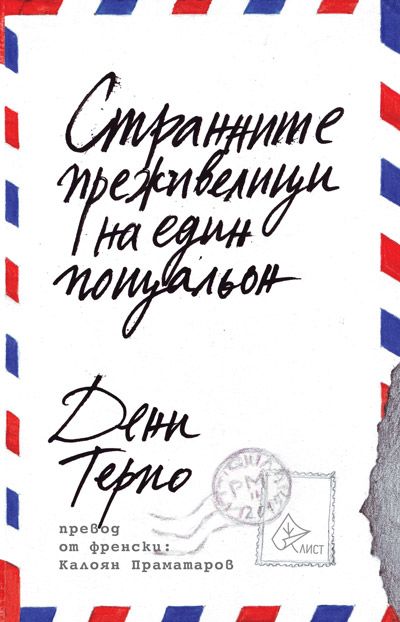 Странните
преживелици
на един
пощальон
Дени
Терио
ЛИСТ
превод
от френски:
Калоян Праматаров